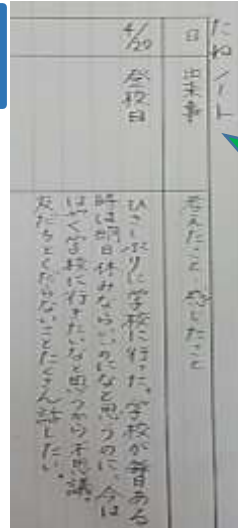 たねノート
日 出来事 考えたこと 感じたこと
4/20 登校日
ひさしぶりに学校に行った。学校が毎日ある
時は明日休みならいいのになと思うのに、今は
はやく学校に行きたいなと思うから不思議。
友だちとくだらないことたくさん話したい。